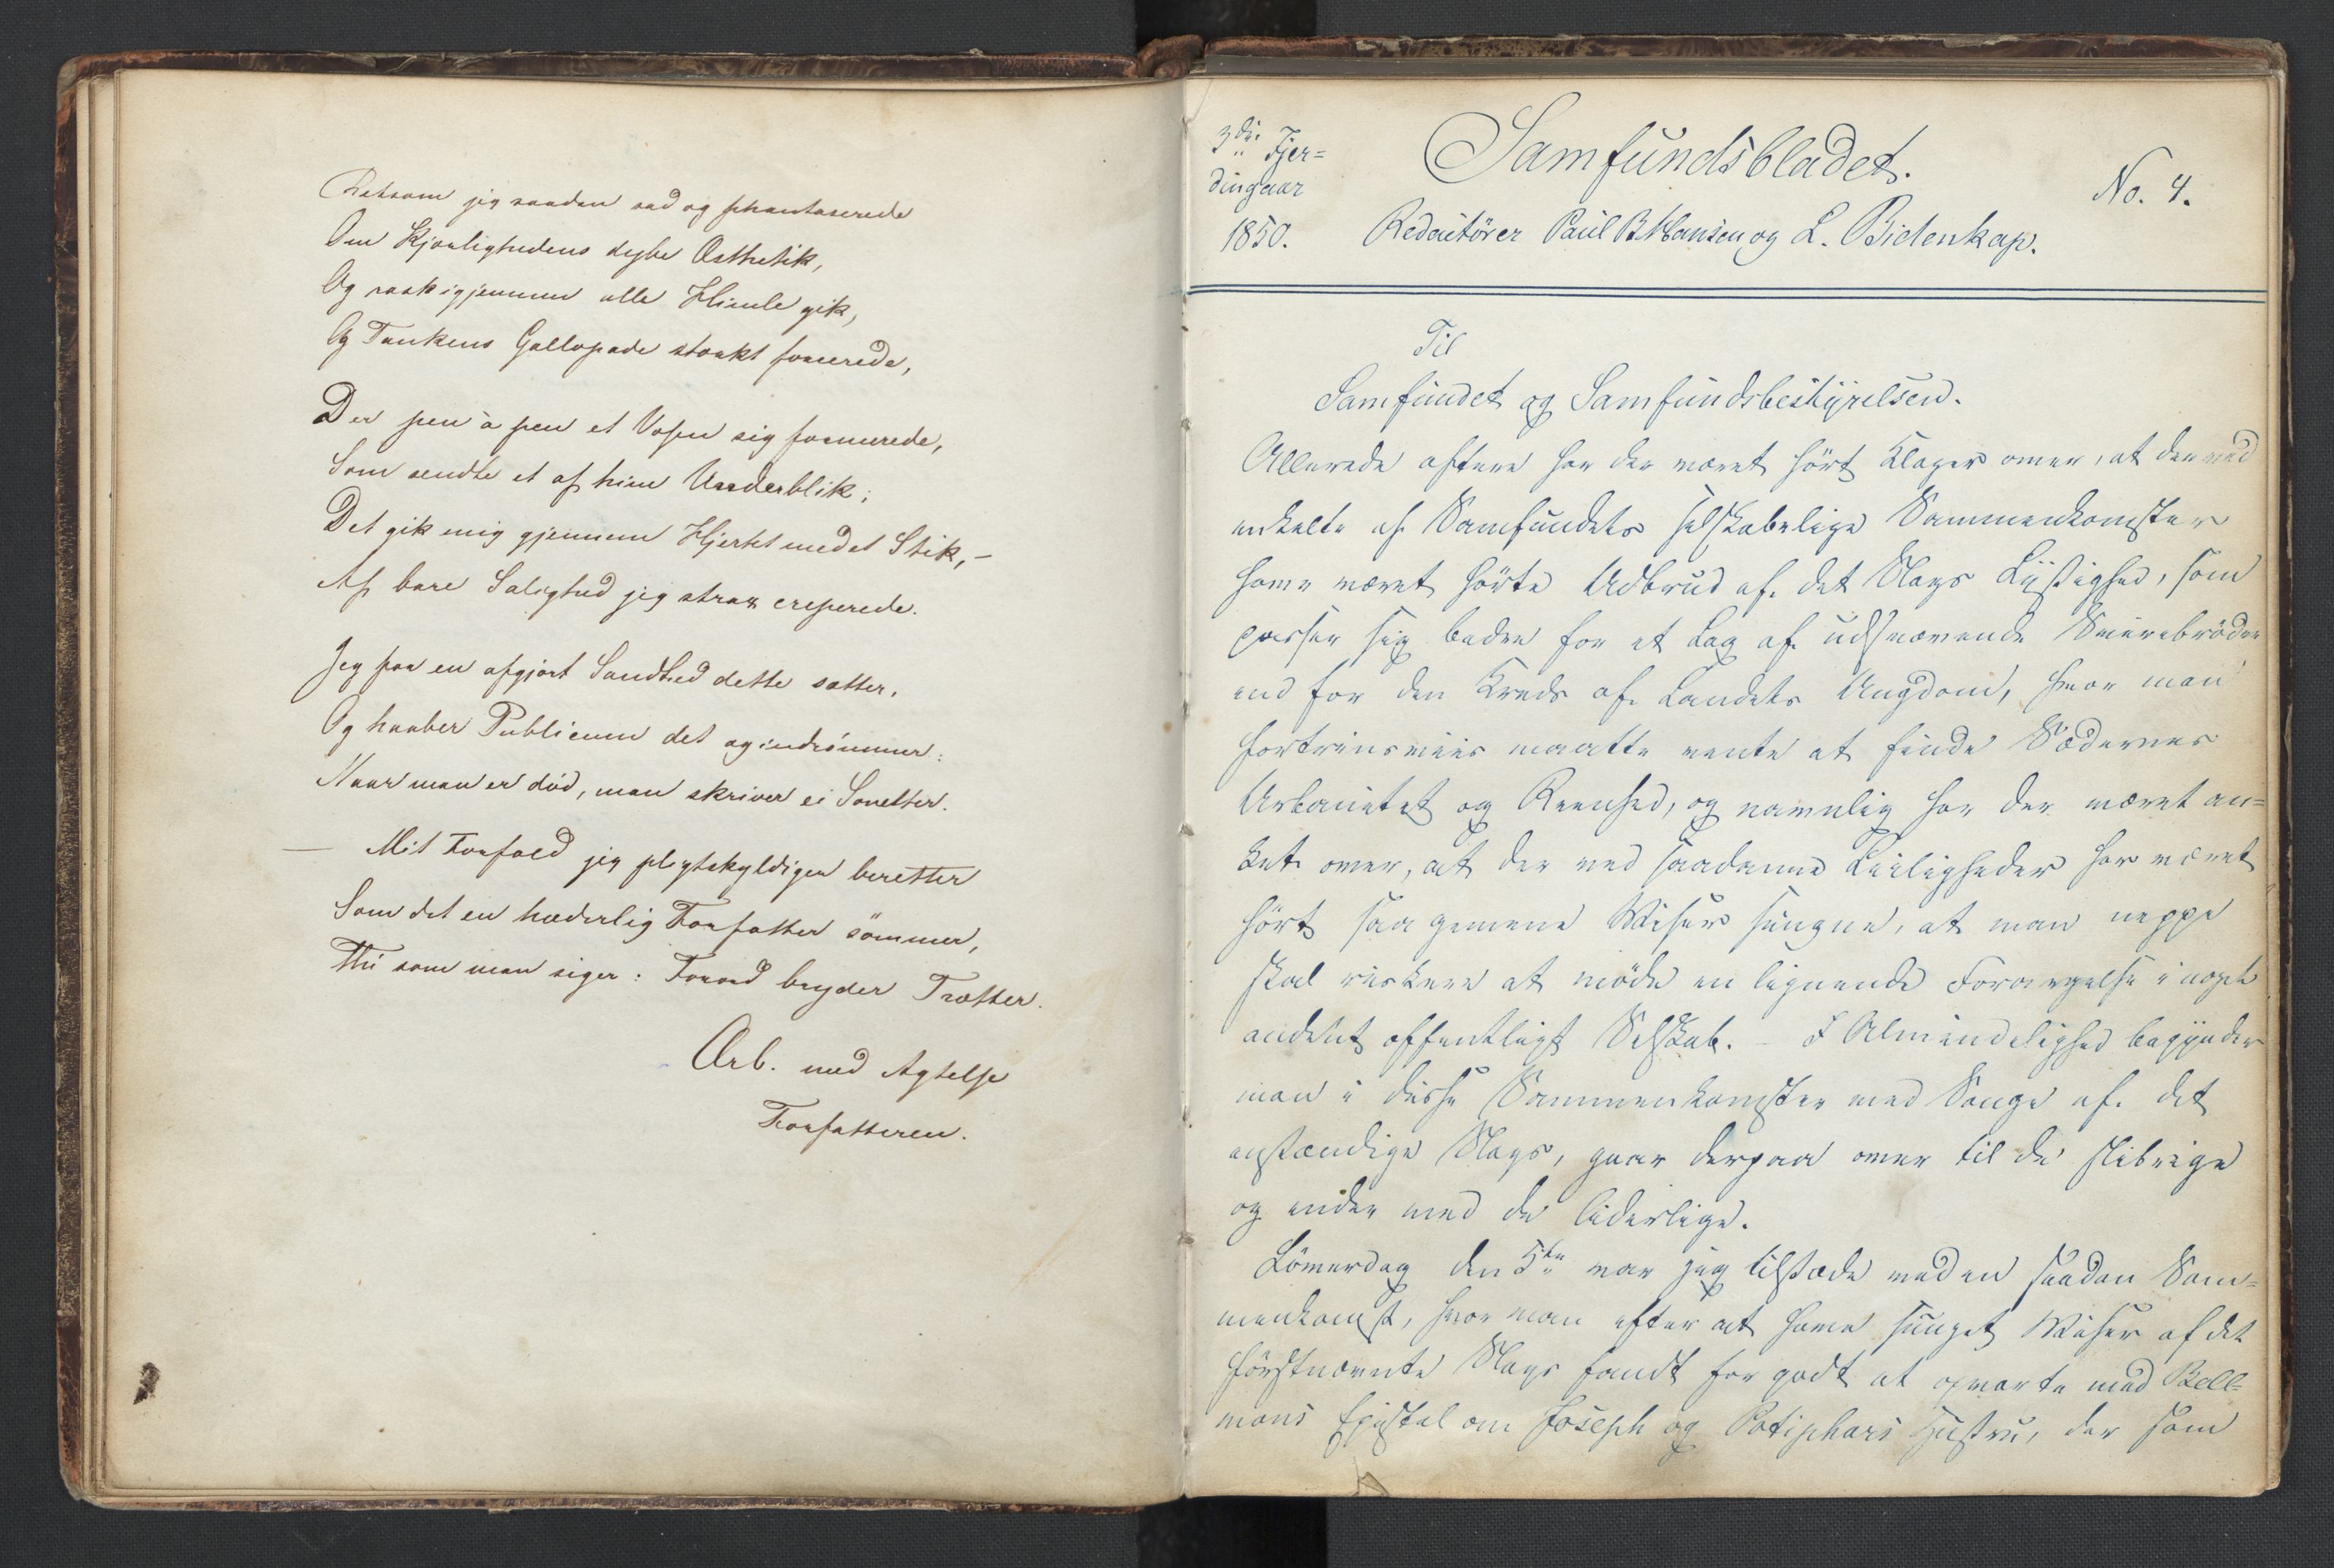 Retsom jeg saadan sad og phantaserede
Om Kjærlighedens dybe Æsthetik,
Og rask igjennem alle Himle gik,
Og Tankens Gallopade stærkt forcerede,
Der peu à peu et Væsen sig formerede,
Som sendte et af hine Underblik;
Det gik mig gjennem Hjertet med et Stik, —
Af bare Salighed jeg strax creperede.
Jeg paa en afgjort Sandhed dette sætter,
Og haaber Publicum det og indrømmer:
Naar man er død, man skriver ei Sonetter.
— Mit Forfald jeg pligtskyldigen beretter
Som det en hæderlig Forfatter sömmer,
Thi som man siger: Forord bryder Trætter.
Ærb. med Agtelse
Forfatteren.
3die Fjer=
dingaar
1850.
Samfundsbladet.
No. 4.
Redactörer Paul B Hansen og L. Bidenkap.
Til
Samfundet og Samfundsbestÿrelsen.
Allerede oftere har der været hört Klager over, at der ved
enkelte af Samfundets selskabelige Sammenkomster
have været hörte Udbrud af det Slags Lÿstighed, som
passer sig bedre for et Lag af udsvævende Svirebrödre
end for den Kreds af Landets Ungdom, hvor man
fortrinsviis maatte vente at finde Sædernes
Urbanitet og Reenhed, og navnlig har der været an=
ket over, at der ved saadanne Leiligheder har været
hört saa gemene Viser sungne, at man neppe
skal riskere at möde en lignende Forargelse i noget
andet offentligt Selskab. – I Almindelighed begÿnder
man i disse Sammenkomster med Sange af det
anstændige Slags, gaar derpaa over til de slibrige
og ender med de liderlige.
Löverdag den 5te var jeg tilstæde ved en saadan Sam=
menkomst, hvor man efter at have sunget Viser af det
förstnævnte Slags fandt for godt at opvarte med Bell=
mans Epistel om Joseph og Potiphars Hustru, der som